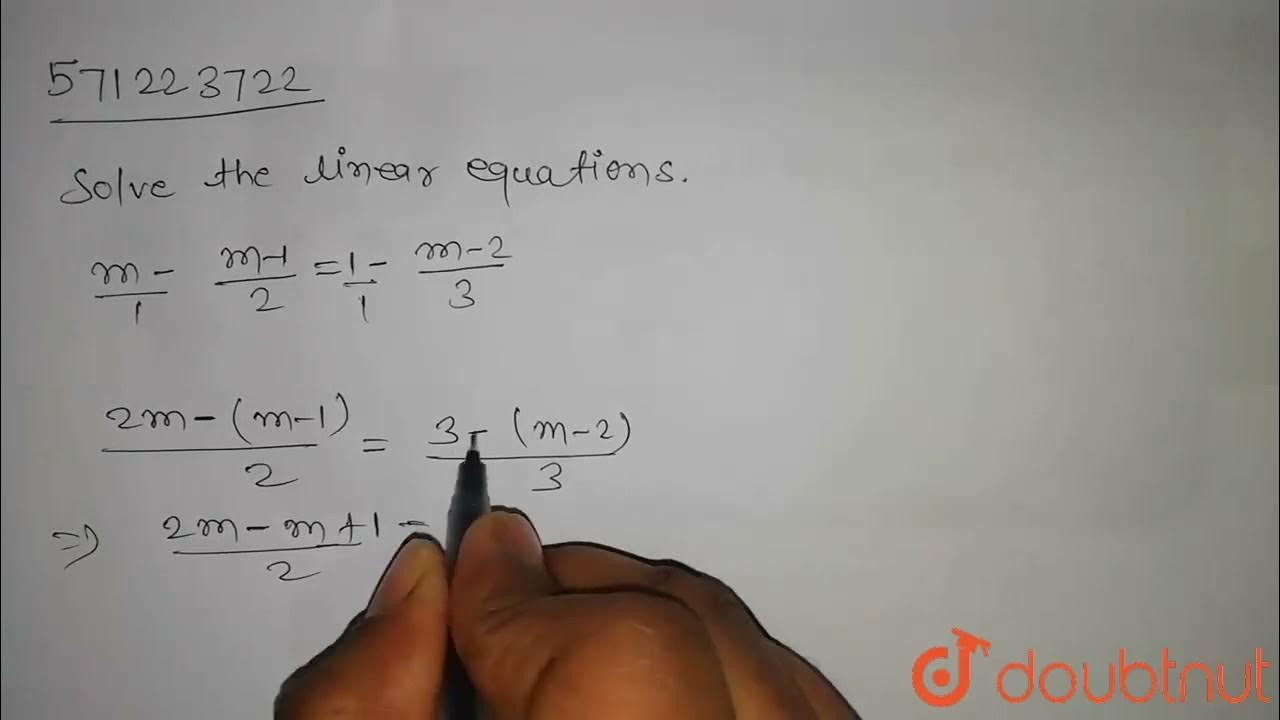 571223722
Solve the linear equations.
m/1 - (m-1)/2 = 1/1 - (m-2)/3
(2m-(m-1))/2 = (3-(m-2))/3
=> (2m-m+1)/2 =
doubtnut